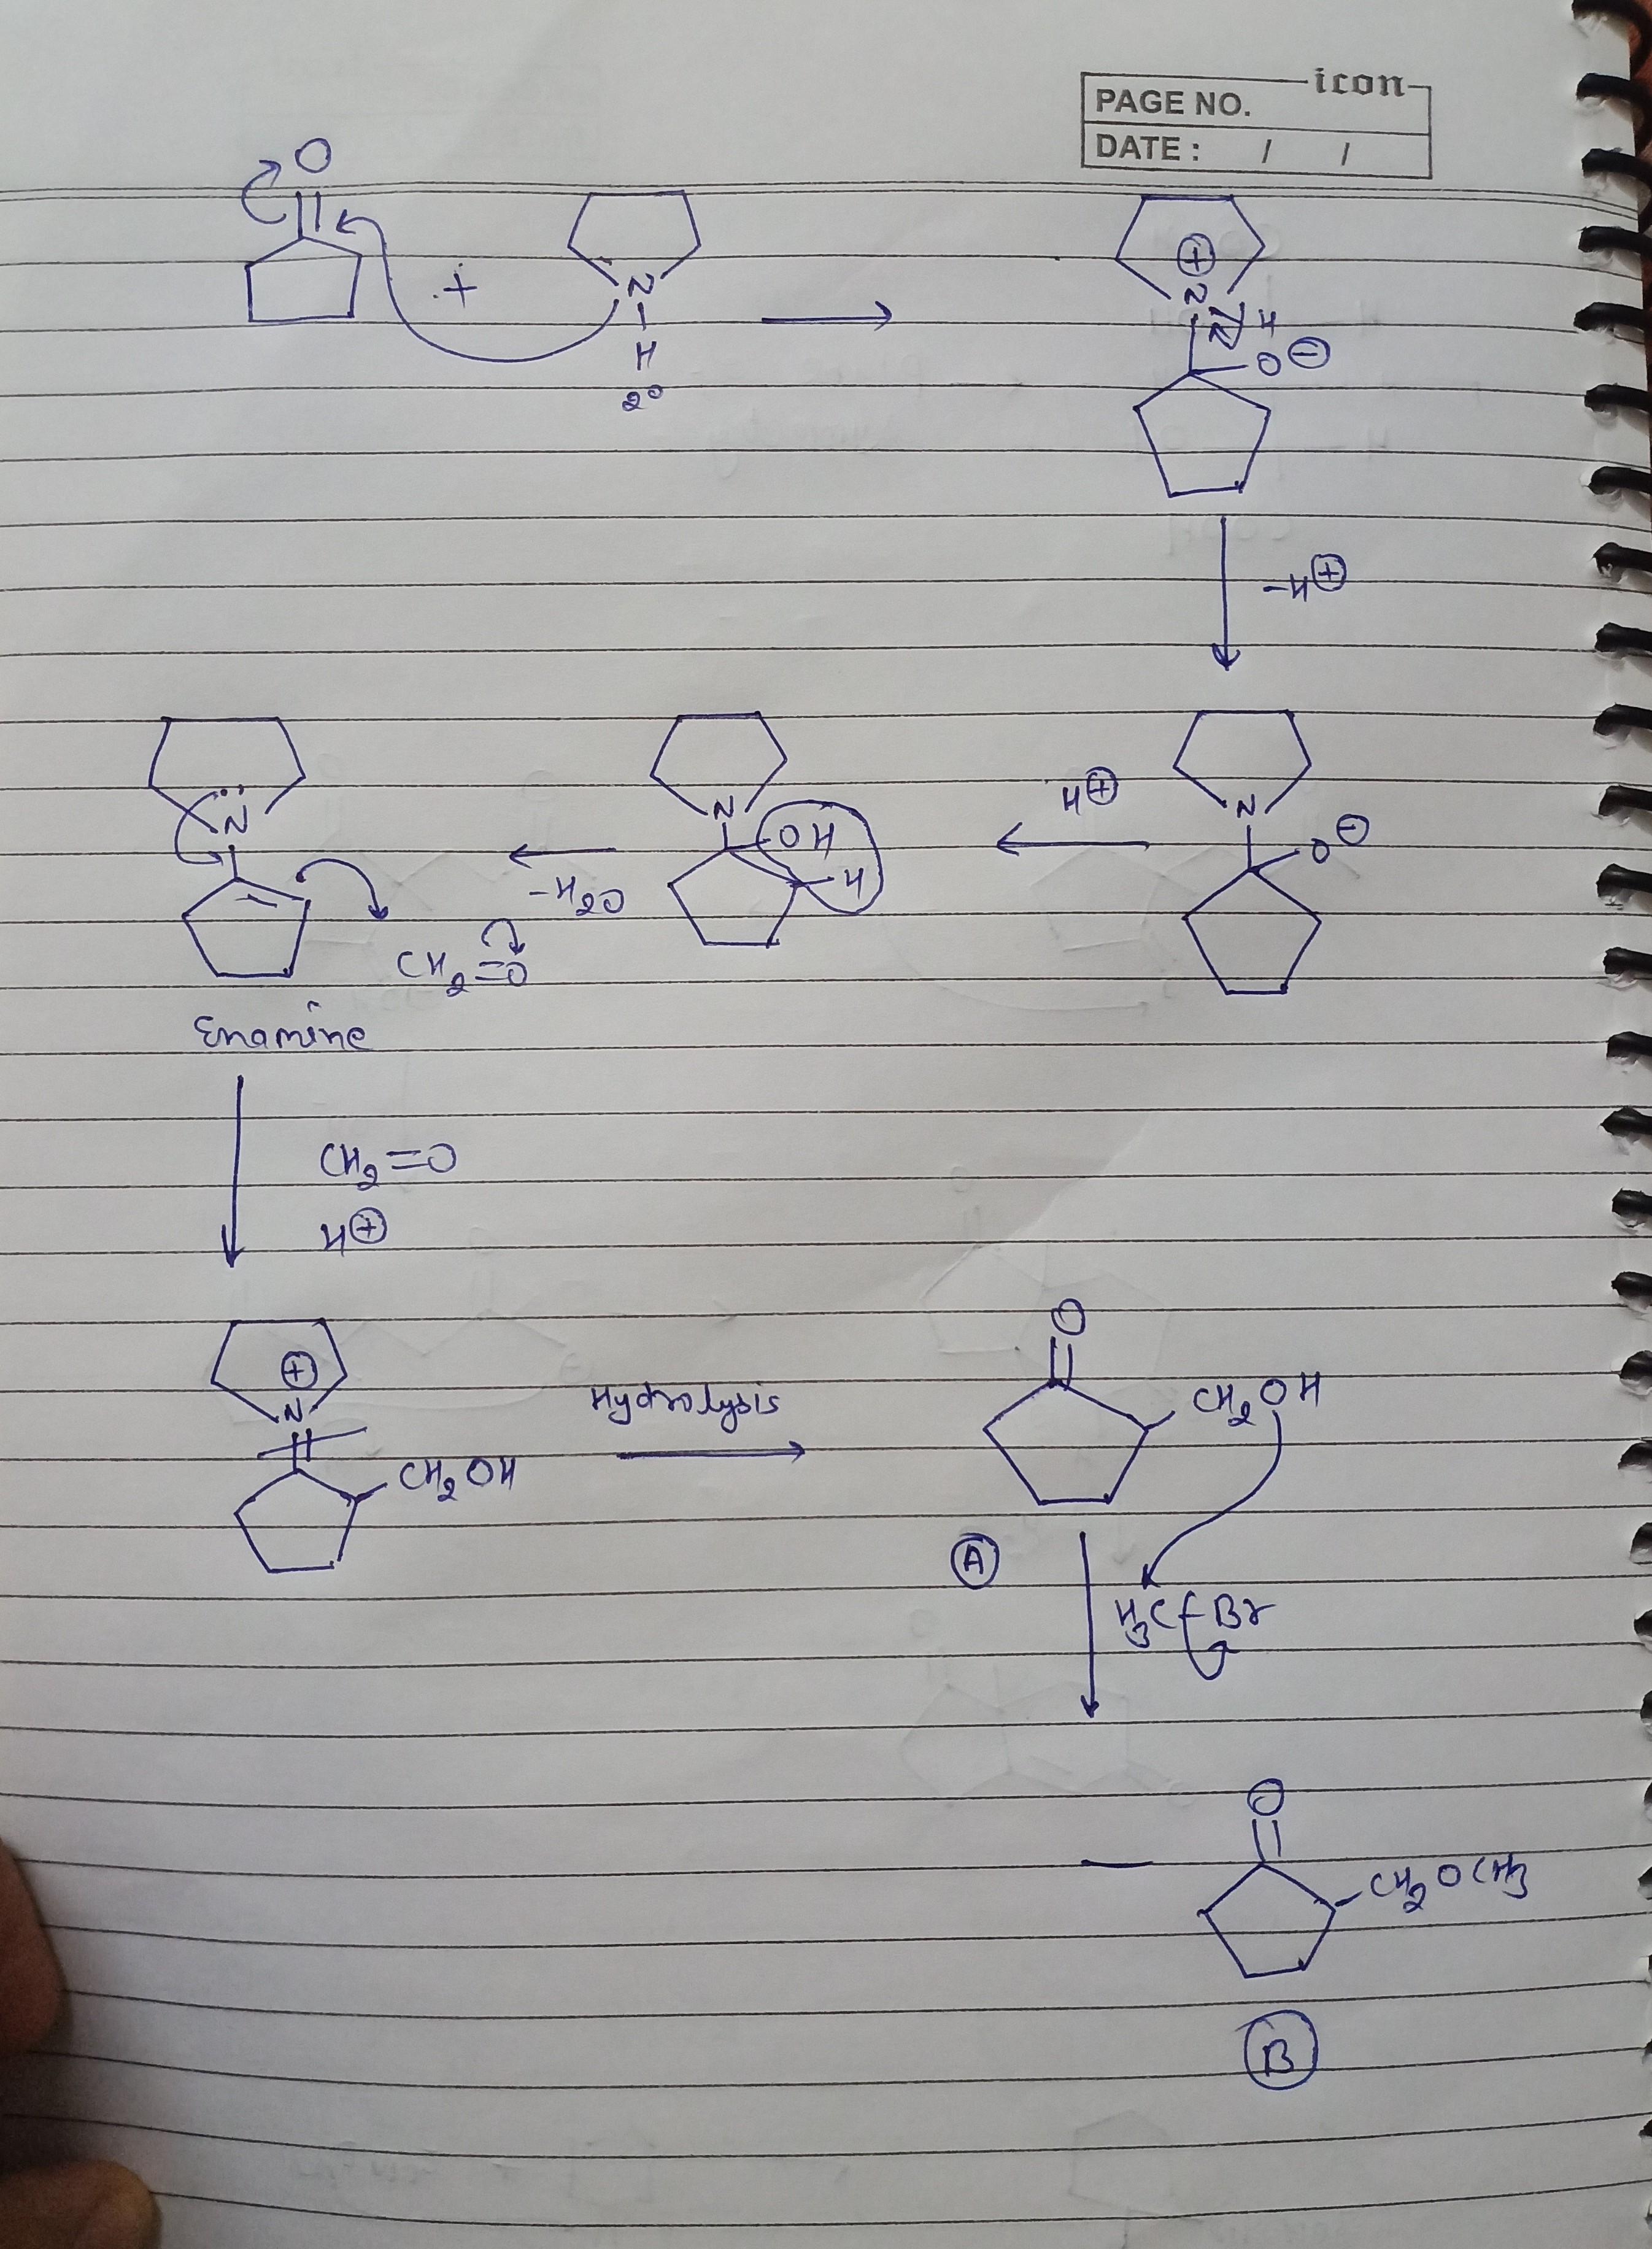 icon
PAGE NO.
DATE : / /
O
+
N
H
2°
⊕
N
H
O⊖
-H⊕
N
N
OH
H
-H2O
H⊕
N
O⊖
CH2=O
Enamine
CH2=O
H⊕
⊕
N
CH2OH
Hydrolysis
O
CH2OH
A
H3C-Br
O
CH2OCH3
B